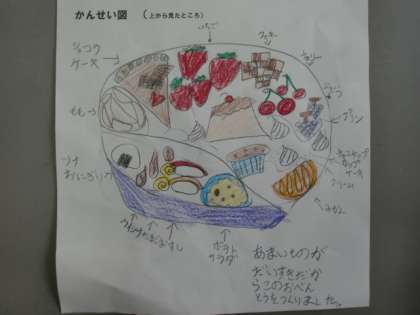 かんせい図 （上から見たところ）
いちご
クッキー
チョコ
ケーキ
チェリー
もも
ぶどう
プリン
カップ
ケーキ
クリーム
ツナ
おにぎり
みかん
ウインナー
たまご
すし
ポテト
サラダ
あまいものが
だいすきだか
らこのおべん
とうをつくりました。